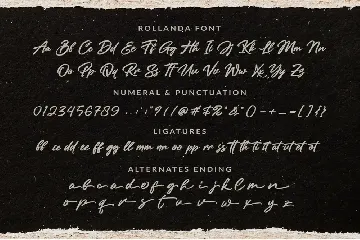 ROLLANDA FONT
Aa Bb Cc Dd Ee Ff Gg Hh Ii Jj Kk Ll Mm Nn
Oo Pp Qq Rr Ss Tt Uu Vv Ww Xx Yy Zz
NUMERAL & PUNCTUATION
0123456789
LIGATURES
ff cc dd ee ff gg ll mm nn oo pp rr ss tt th ti it at ut et ot
ALTERNATES ENDING
a b c d e f g h i j k l m n
o p q r s t u v w x y z